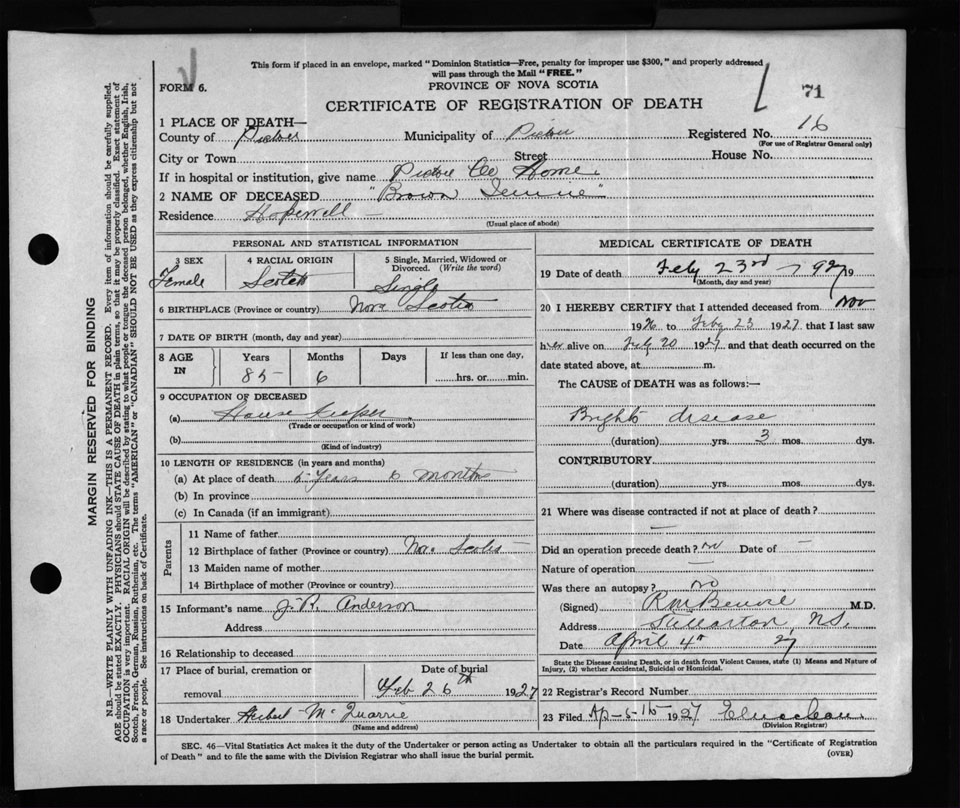 This form if placed in an envelope, marked "Dominion Statistics—Free, penalty for improper use $300," and properly addressed
will pass through the Mail "FREE."
FORM 6.
PROVINCE OF NOVA SCOTIA
71
CERTIFICATE OF REGISTRATION OF DEATH
1 PLACE OF DEATH—
County of Pictou Municipality of Pictou Registered No. 16
(For use of Registrar General only)
City or Town Street House No.
If in hospital or institution, give name Pictou Co Home
2 NAME OF DECEASED "Brown Jennie"
Residence Hopewell —
(Usual place of abode)
PERSONAL AND STATISTICAL INFORMATION
3 SEX 4 RACIAL ORIGIN 5 Single, Married, Widowed or
Divorced. (Write the word)
Female Scotch Single
6 BIRTHPLACE (Province or country) Nova Scotia
7 DATE OF BIRTH (month, day and year)
8 AGE IN Years Months Days If less than one day,
85 6 hrs. or min.
9 OCCUPATION OF DECEASED
(a) House Keeper
(Trade or occupation or kind of work)
(b)
(Kind of industry)
10 LENGTH OF RESIDENCE (in years and months)
(a) At place of death Years 6 months
(b) In province
(c) In Canada (if an immigrant)
Parents
11 Name of father
12 Birthplace of father (Province or country) Nova Scotia
13 Maiden name of mother
14 Birthplace of mother (Province or country)
15 Informant's name J. R. Anderson
Address
16 Relationship to deceased
17 Place of burial, cremation or Date of burial
removal Feb 26th 1927
18 Undertaker Herbert McQuarrie
(Name and address)
MEDICAL CERTIFICATE OF DEATH
19 Date of death Feby 23rd 1927 19
(Month, day and year)
20 I HEREBY CERTIFY that I attended deceased from Nov
1926 to Feby 23 1927 that I last saw
her alive on Feby 20 1927 and that death occurred on the
date stated above, at m.
The CAUSE of DEATH was as follows:—
Brights disease
(duration) yrs. 3 mos. dys.
CONTRIBUTORY
(duration) yrs. mos. dys.
21 Where was disease contracted if not at place of death?
—
Did an operation precede death? no Date of —
Nature of operation —
Was there an autopsy? no
(Signed) M.D.
Address Stellarton, N.S.
Date April 4th 27
State the Disease causing Death, or in death from Violent Causes, state (1) Means and Nature of
Injury, (2) whether Accidental, Suicidal or Homicidal.
22 Registrar's Record Number
23 Filed 1927
(Division Registrar)
SEC. 46—Vital Statistics Act makes it the duty of the Undertaker or person acting as Undertaker to obtain all the particulars required in the "Certificate of Registration
of Death" and to file the same with the Division Registrar who shall issue the burial permit.
(OVER)
MARGIN RESERVED FOR BINDING
N.B.—WRITE PLAINLY WITH UNFADING INK—THIS IS A PERMANENT RECORD. Every item of information should be carefully supplied.
AGE should be stated EXACTLY. PHYSICIANS should STATE CAUSE OF DEATH in plain terms, so that it may be properly classified. Exact statement of
OCCUPATION is very important. RACIAL ORIGIN will be described by stating to what people or tongue the deceased person belonged, whether English, Irish,
Scotch, French, German, Russian, Ruthenian, etc. The terms "AMERICAN" or "CANADIAN" SHOULD NOT BE USED as they express citizenship but not
a race or people. See instructions on back of Certificate.